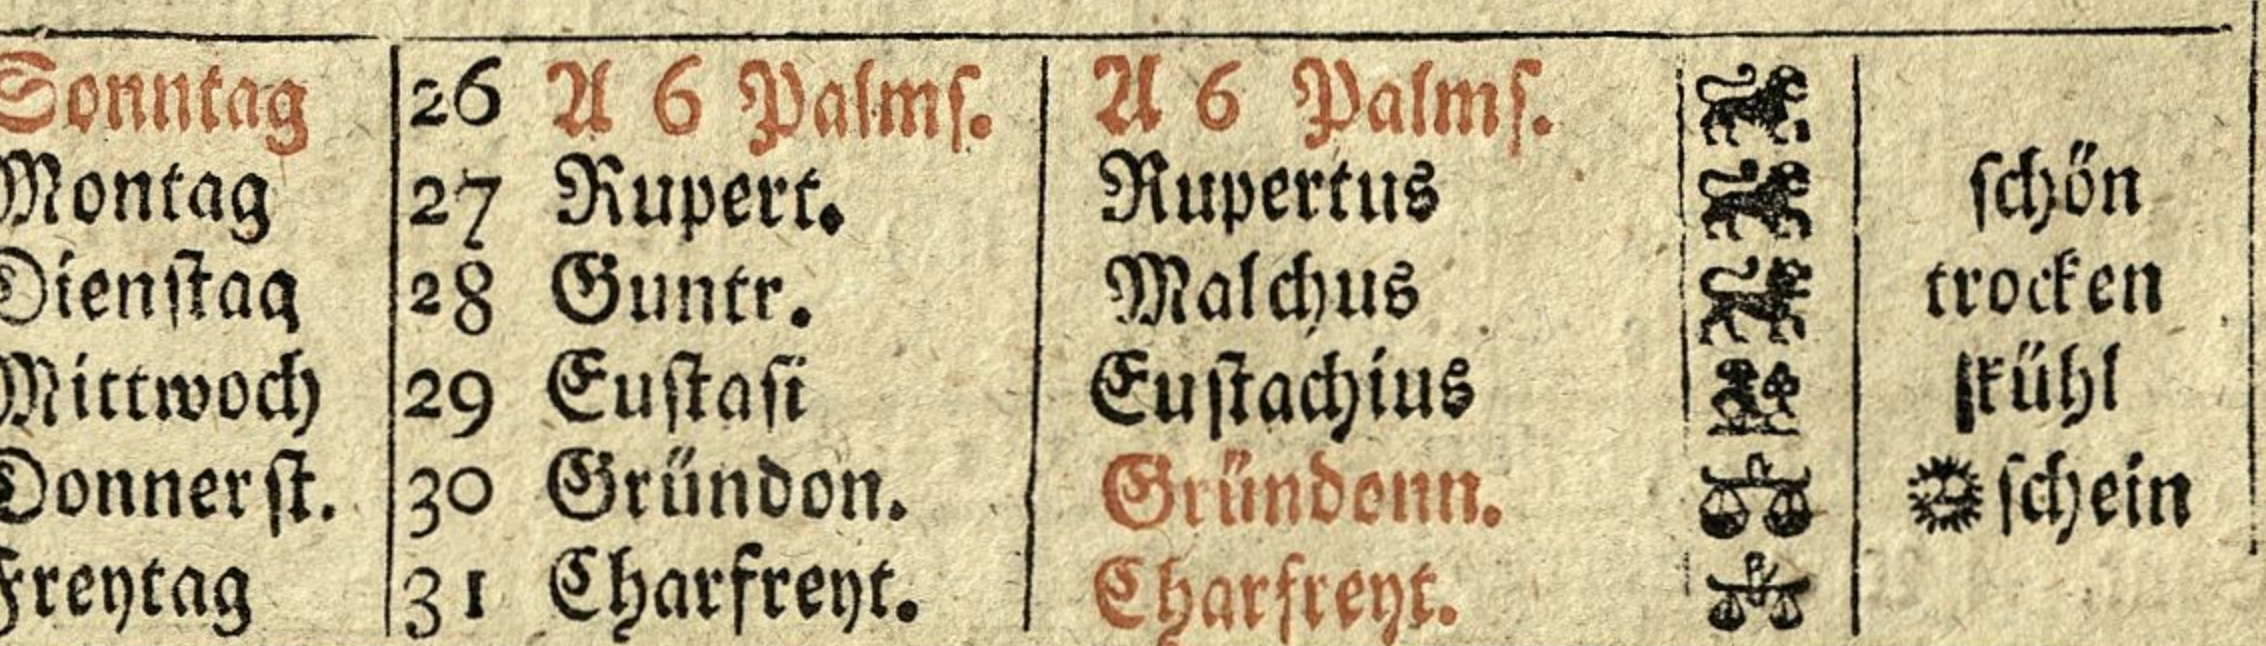 Sonntag 26 A 6 Palmſ. A 6 Palmſ.
Montag 27 Rupert. Rupertus ſchön
Dienſtag 28 Guntr. Malchus trocken
Mittwoch 29 Euſtaſi Euſtachius kühl
Donnerſt. 30 Gründon. Gründonn. ſchein
Freytag 31 Charfreyt. Charfreyt.